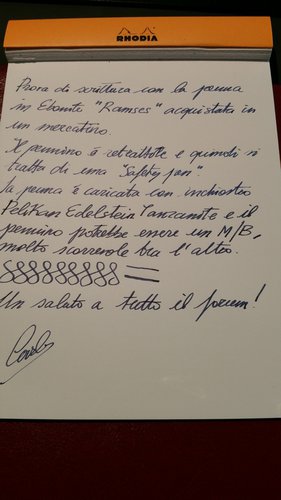 RHODIA
Prova di scrittura con la penna
in Ebanite "Ramses" acquistata in
un mercatino.
Il pennino è retrattile e quindi si
tratta di una "Safety pen".
la penna è caricata con inchiostro
Pelikan Edelstein Tanzanite e il
pennino potrebbe essere un M/B,
molto scorrevole tra l'altro.
Un saluto a tutto il forum!